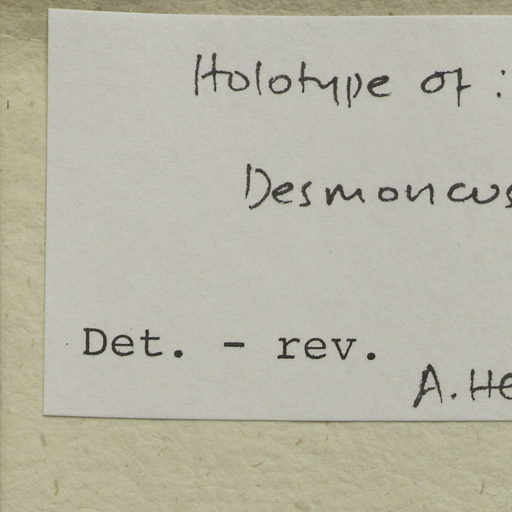 Holotype of :
Desmoncus
Det. - rev.
A. He